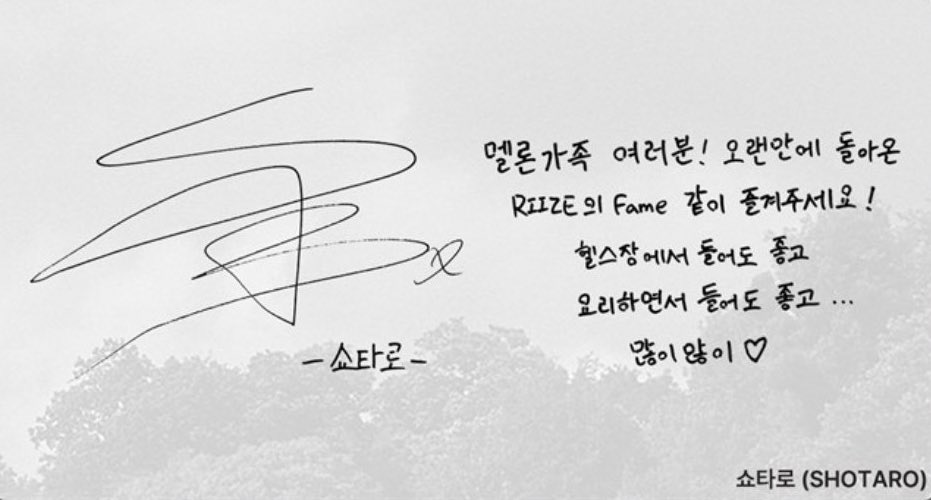 멜론가족 여러분! 오랜만에 돌아온
RIIZE의 Fame 같이 즐겨주세요!
헬스장에서 들어도 좋고
요리하면서 들어도 좋고 ...
많이많이 ♡
- 쇼타로 -
쇼타로 (SHOTARO)